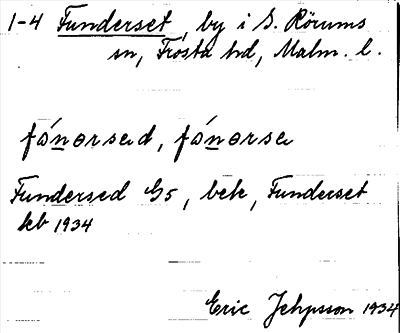 1-4 Funderset, by i S. Rörums
sn, Frosta hd, Malm. l.
fónørsed, fónørse
Fundersed G5, bek, Funderset
kb 1934
Eric Jehpsson 1934